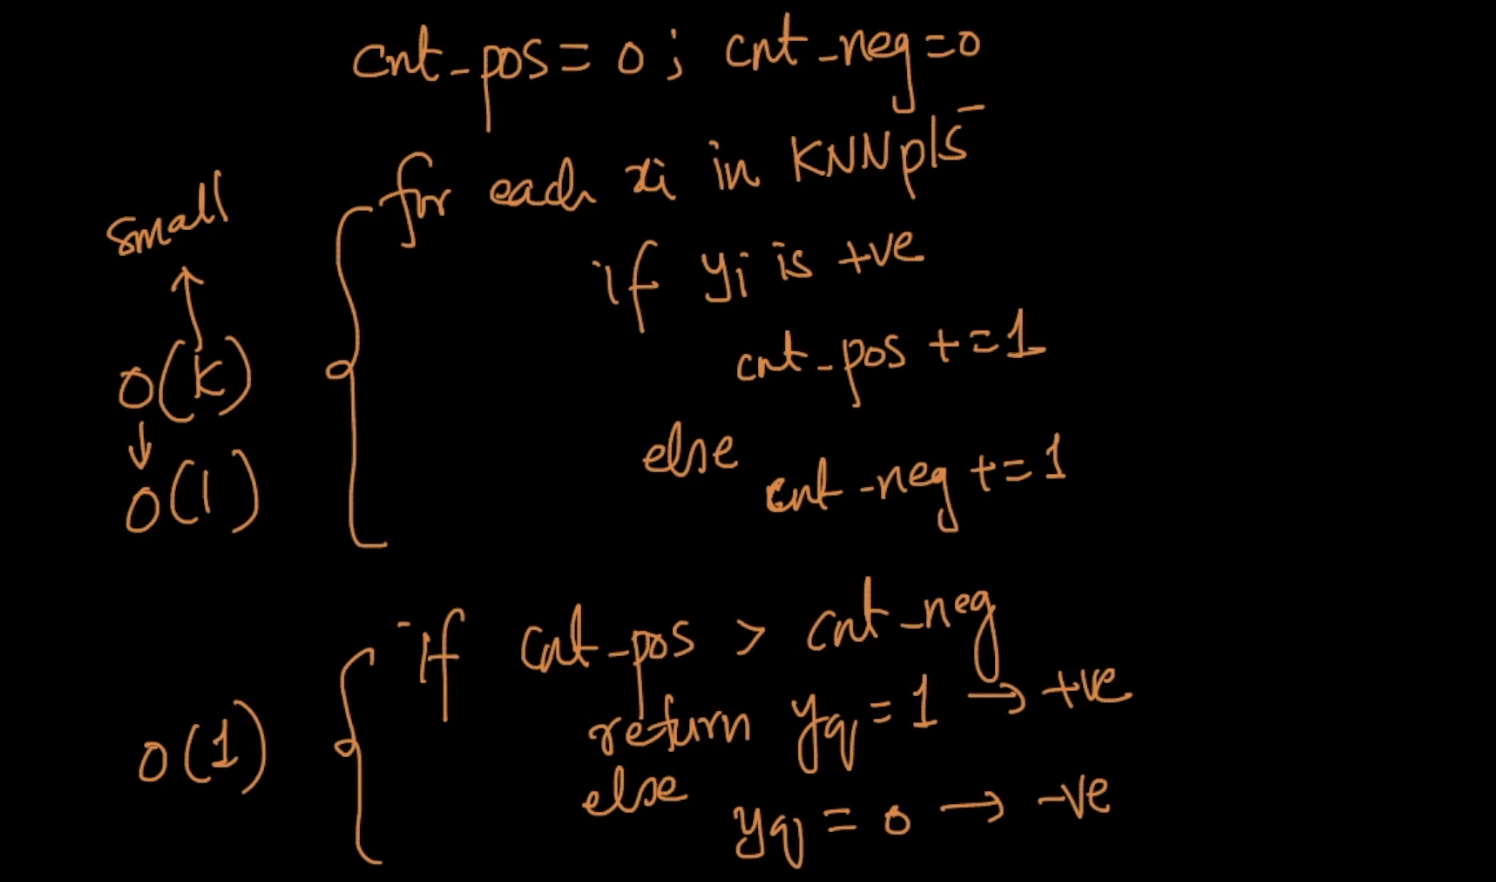 cnt_pos = 0 ; cnt_neg = 0
for each xi in KNN pts
small
if yi is +ve
cnt_pos += 1
O(k)
else
cnt_neg += 1
O(1)
if cnt_pos > cnt_neg
return yq = 1 → +ve
O(1)
else
yq = 0 → -ve